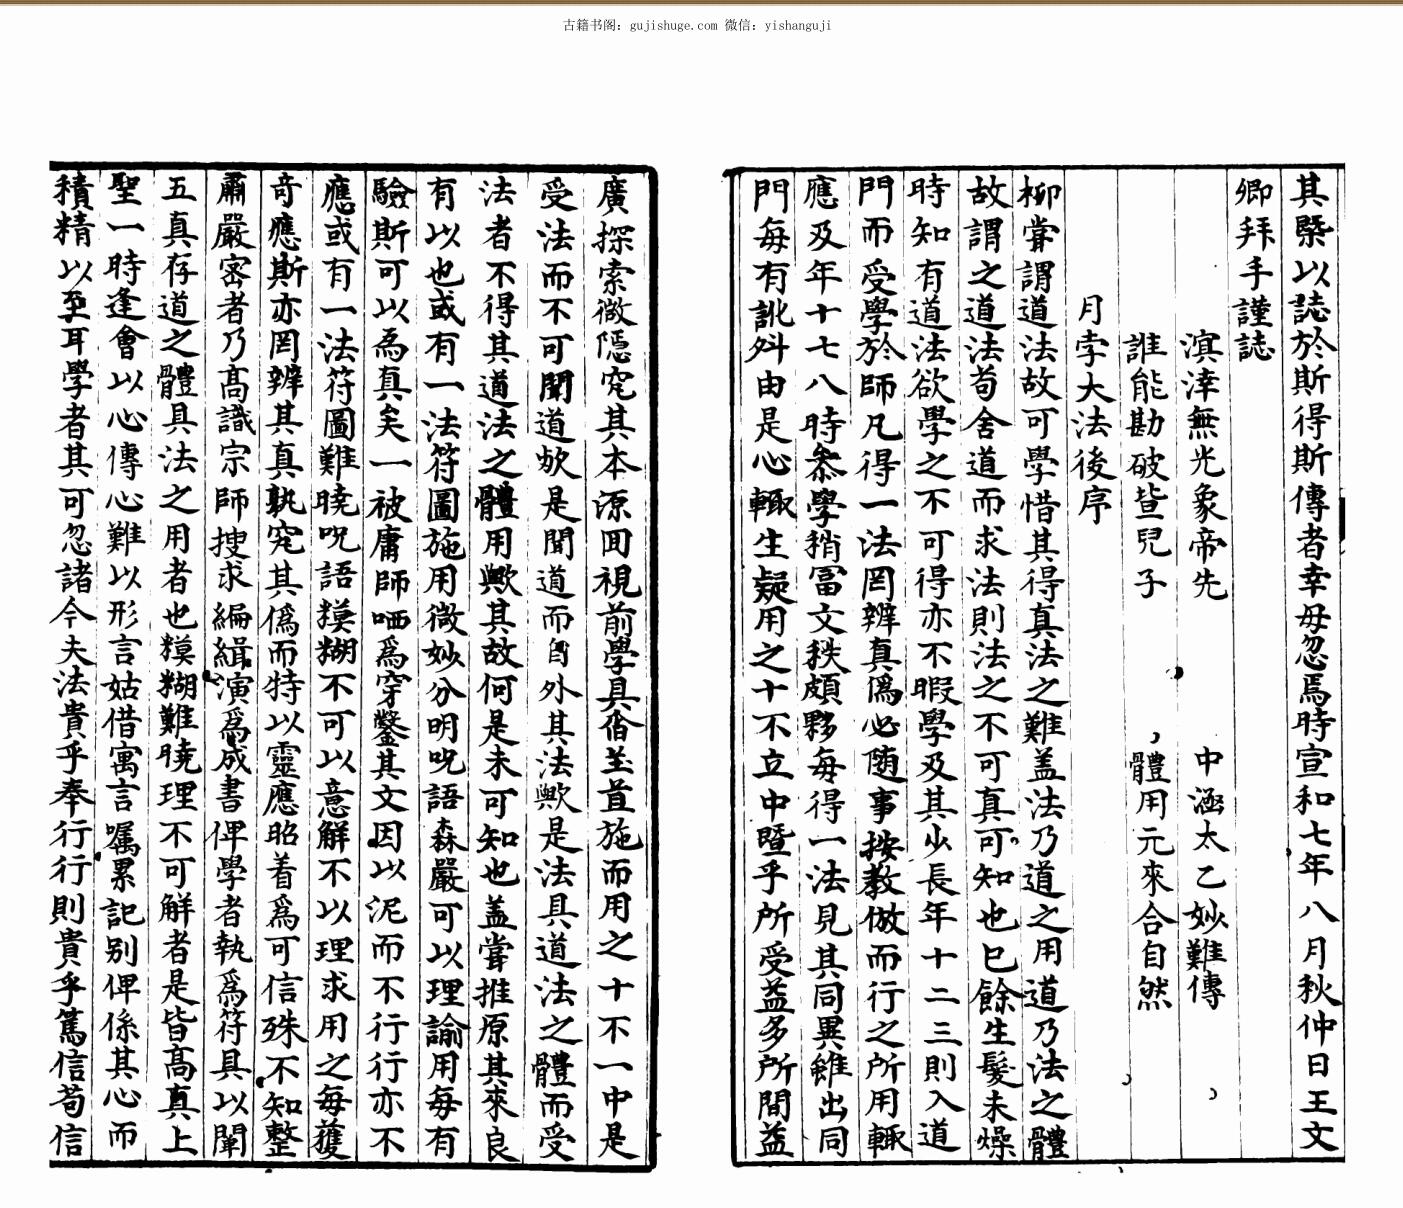 古籍书阁：gujishuge.com 微信：yishanguji
其槩以誌於斯得斯傳者幸毋忽焉時宣和七年八月秋仲日王文
卿拜手謹誌
溟涬無光象帝先　中涵太乙妙難傳
誰能勘破嬰兒子　體用元來合自然
月孛大法後序
柳甞謂道法故可學惜其得真法之難盖法乃道之用道乃法之體
故謂之道法苟舍道而求法則法之不可真可知也巳餘生髮未燥
時知有道法欲學之不可得亦不暇學及其少長年十二三則入道
門而受學於師凡得一法罔辨真僞必随事按教倣而行之所用輙
應及年十七八時叅學稍冨文秩頗夥每得一法見其同異雖出同
門每有訛舛由是心輙生疑用之十不立中暨乎所受益多所間益
廣探索微隱究其本源囬視前學具俻並首施而用之十不一中是
受法而不可聞道欤是聞道而自外其法歟是法具道法之體而受
法者不得其道法之體用歟其故何是未可知也盖嘗推原其來良
有以也或有一法符圖施用微妙分明呪語森嚴可以理諭用每有
驗斯可以為真矣一被庸師哂爲穿鑿其文因以泥而不行行亦不
應或有一法符圖難曉呪語糢糊不可以意解不以理求用之每獲
奇應斯亦罔辨其真孰究其僞而特以靈應昭着爲可信殊不知整
肅嚴密者乃高識宗師搜求編緝演爲成書俾學者執爲符具以闡
五真存道之體具法之用者也糢糊難曉理不可解者是皆高真上
聖一時逢會以心傳心難以形言姑借寓言囑累記别俾係其心而
積精以至耳學者其可忽諸今夫法貴乎奉行行則貴乎篤信苟信